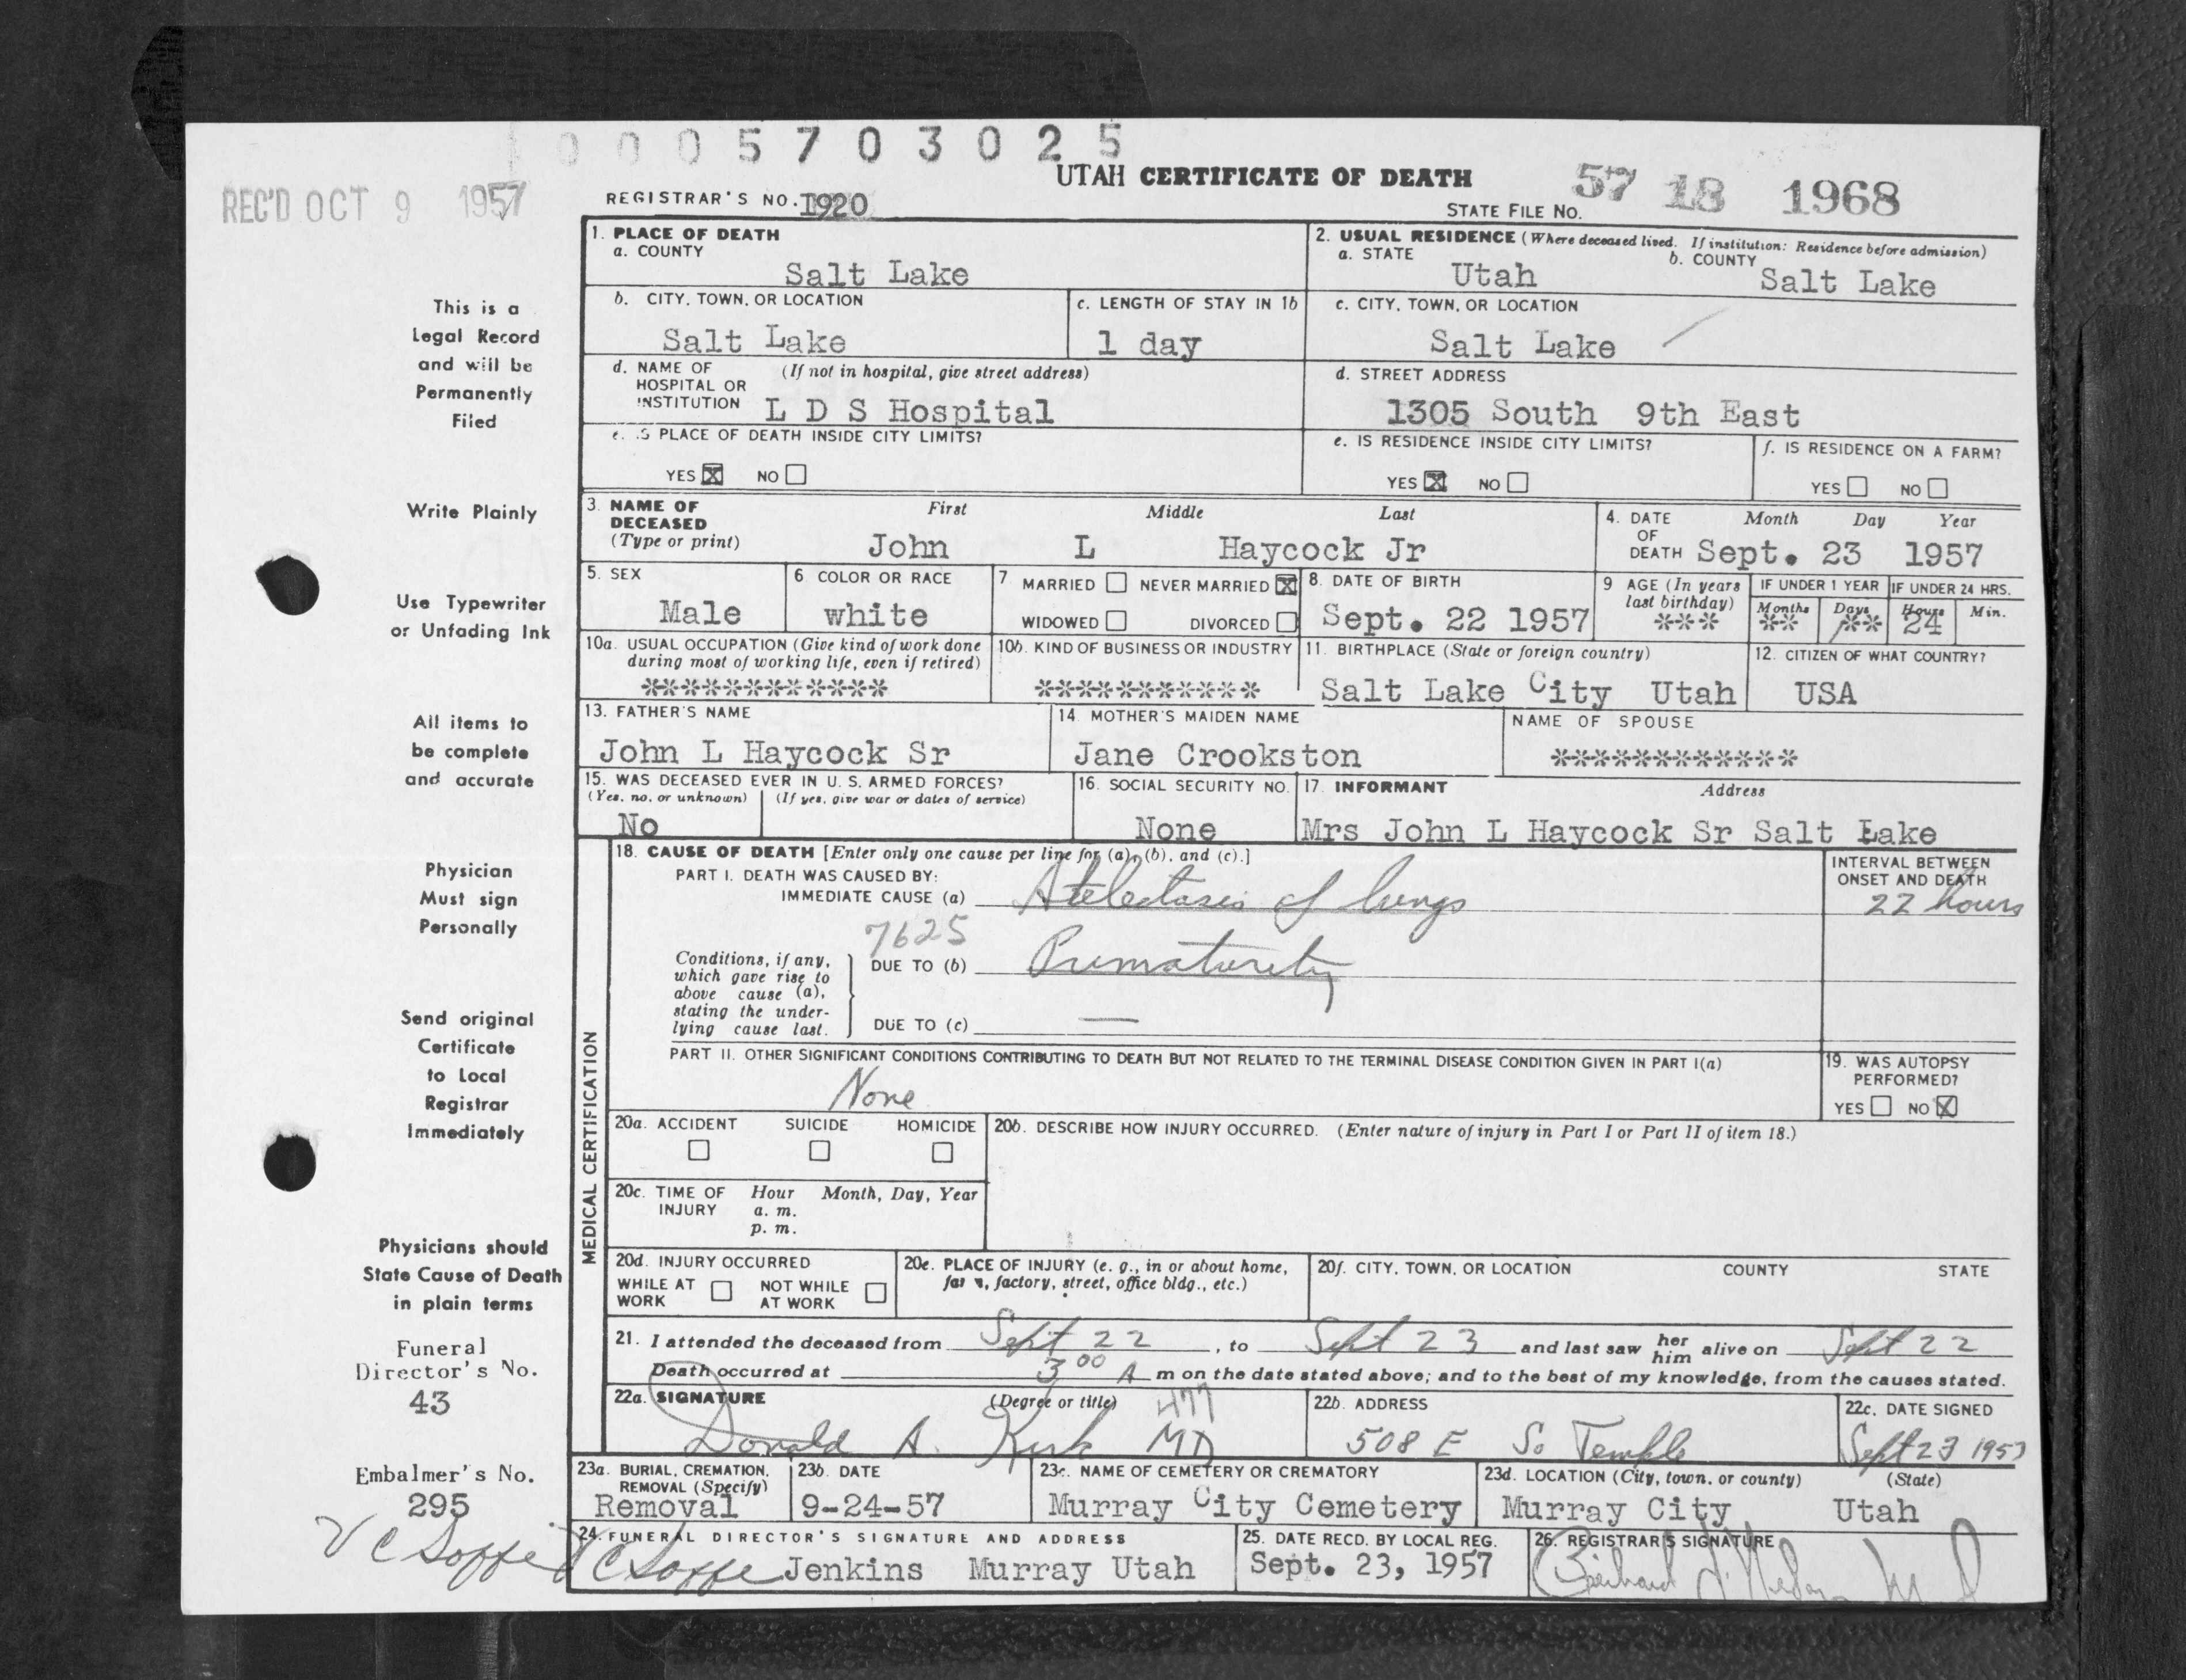 0005703025
REC'D OCT 9 1957
UTAH CERTIFICATE OF DEATH
REGISTRAR'S NO. 1920
STATE FILE NO. 57 18 1968
This is a
Legal Record
and will be
Permanently
Filed
Write Plainly
Use Typewriter
or Unfading Ink
All items to
be complete
and accurate
Physician
Must sign
Personally
Send original
Certificate
to Local
Registrar
Immediately
Physicians should
State Cause of Death
in plain terms
Funeral
Director's No.
43
Embalmer's No.
295
V C Soffe
1. PLACE OF DEATH
a. COUNTY
Salt Lake
2. USUAL RESIDENCE (Where deceased lived. If institution: Residence before admission)
a. STATE
Utah
b. COUNTY
Salt Lake
b. CITY, TOWN, OR LOCATION
Salt Lake
c. LENGTH OF STAY IN 1b
1 day
c. CITY, TOWN, OR LOCATION
Salt Lake
d. NAME OF HOSPITAL OR INSTITUTION (If not in hospital, give street address)
L D S Hospital
d. STREET ADDRESS
1305 South 9th East
e. IS PLACE OF DEATH INSIDE CITY LIMITS?
YES X NO
e. IS RESIDENCE INSIDE CITY LIMITS?
YES X NO
f. IS RESIDENCE ON A FARM?
YES NO
3. NAME OF DECEASED (Type or print)
First Middle Last
John L Haycock Jr
4. DATE OF DEATH
Month Day Year
Sept. 23 1957
5. SEX
Male
6 COLOR OR RACE
white
7 MARRIED NEVER MARRIED X
WIDOWED DIVORCED
8. DATE OF BIRTH
Sept. 22 1957
9 AGE (In years last birthday)
***
IF UNDER 1 YEAR
Months Days
** **
IF UNDER 24 HRS.
Hours Min.
24
10a. USUAL OCCUPATION (Give kind of work done during most of working life, even if retired)
*************
10b. KIND OF BUSINESS OR INDUSTRY
************
11. BIRTHPLACE (State or foreign country)
Salt Lake City Utah
12. CITIZEN OF WHAT COUNTRY?
USA
13. FATHER'S NAME
John L Haycock Sr
14. MOTHER'S MAIDEN NAME
Jane Crookston
NAME OF SPOUSE
*************
15. WAS DECEASED EVER IN U. S. ARMED FORCES?
(Yes, no, or unknown) (If yes, give war or dates of service)
No
16. SOCIAL SECURITY NO.
None
17. INFORMANT Address
Mrs John L Haycock Sr Salt Lake
MEDICAL CERTIFICATION
18. CAUSE OF DEATH [Enter only one cause per line for (a), (b), and (c).]
PART I. DEATH WAS CAUSED BY:
IMMEDIATE CAUSE (a) Atelectasis of lungs
INTERVAL BETWEEN ONSET AND DEATH
22 hours
7625
Conditions, if any, which gave rise to above cause (a), stating the underlying cause last.
DUE TO (b) Prematurity
DUE TO (c) —
PART II. OTHER SIGNIFICANT CONDITIONS CONTRIBUTING TO DEATH BUT NOT RELATED TO THE TERMINAL DISEASE CONDITION GIVEN IN PART I(a)
None
19. WAS AUTOPSY PERFORMED?
YES NO X
20a. ACCIDENT SUICIDE HOMICIDE
20b. DESCRIBE HOW INJURY OCCURRED. (Enter nature of injury in Part I or Part II of item 18.)
20c. TIME OF INJURY Hour Month, Day, Year
a. m.
p. m.
20d. INJURY OCCURRED
WHILE AT WORK NOT WHILE AT WORK
20e. PLACE OF INJURY (e. g., in or about home, farm, factory, street, office bldg., etc.)
20f. CITY, TOWN, OR LOCATION COUNTY STATE
21. I attended the deceased from Sept 22, to Sept 23 and last saw her him alive on Sept 22
Death occurred at 3 00 A m on the date stated above; and to the best of my knowledge, from the causes stated.
22a. SIGNATURE (Degree or title) 477
Donald A. Kirk MD
22b. ADDRESS
508 E So Temple
22c. DATE SIGNED
Sept 23 1957
23a. BURIAL, CREMATION, REMOVAL (Specify)
Removal
23b. DATE
9-24-57
23c. NAME OF CEMETERY OR CREMATORY
Murray City Cemetery
23d. LOCATION (City, town, or county) (State)
Murray City Utah
24. FUNERAL DIRECTOR'S SIGNATURE AND ADDRESS
V C Soffe Jenkins Murray Utah
25. DATE RECD. BY LOCAL REG.
Sept. 23, 1957
26. REGISTRAR'S SIGNATURE